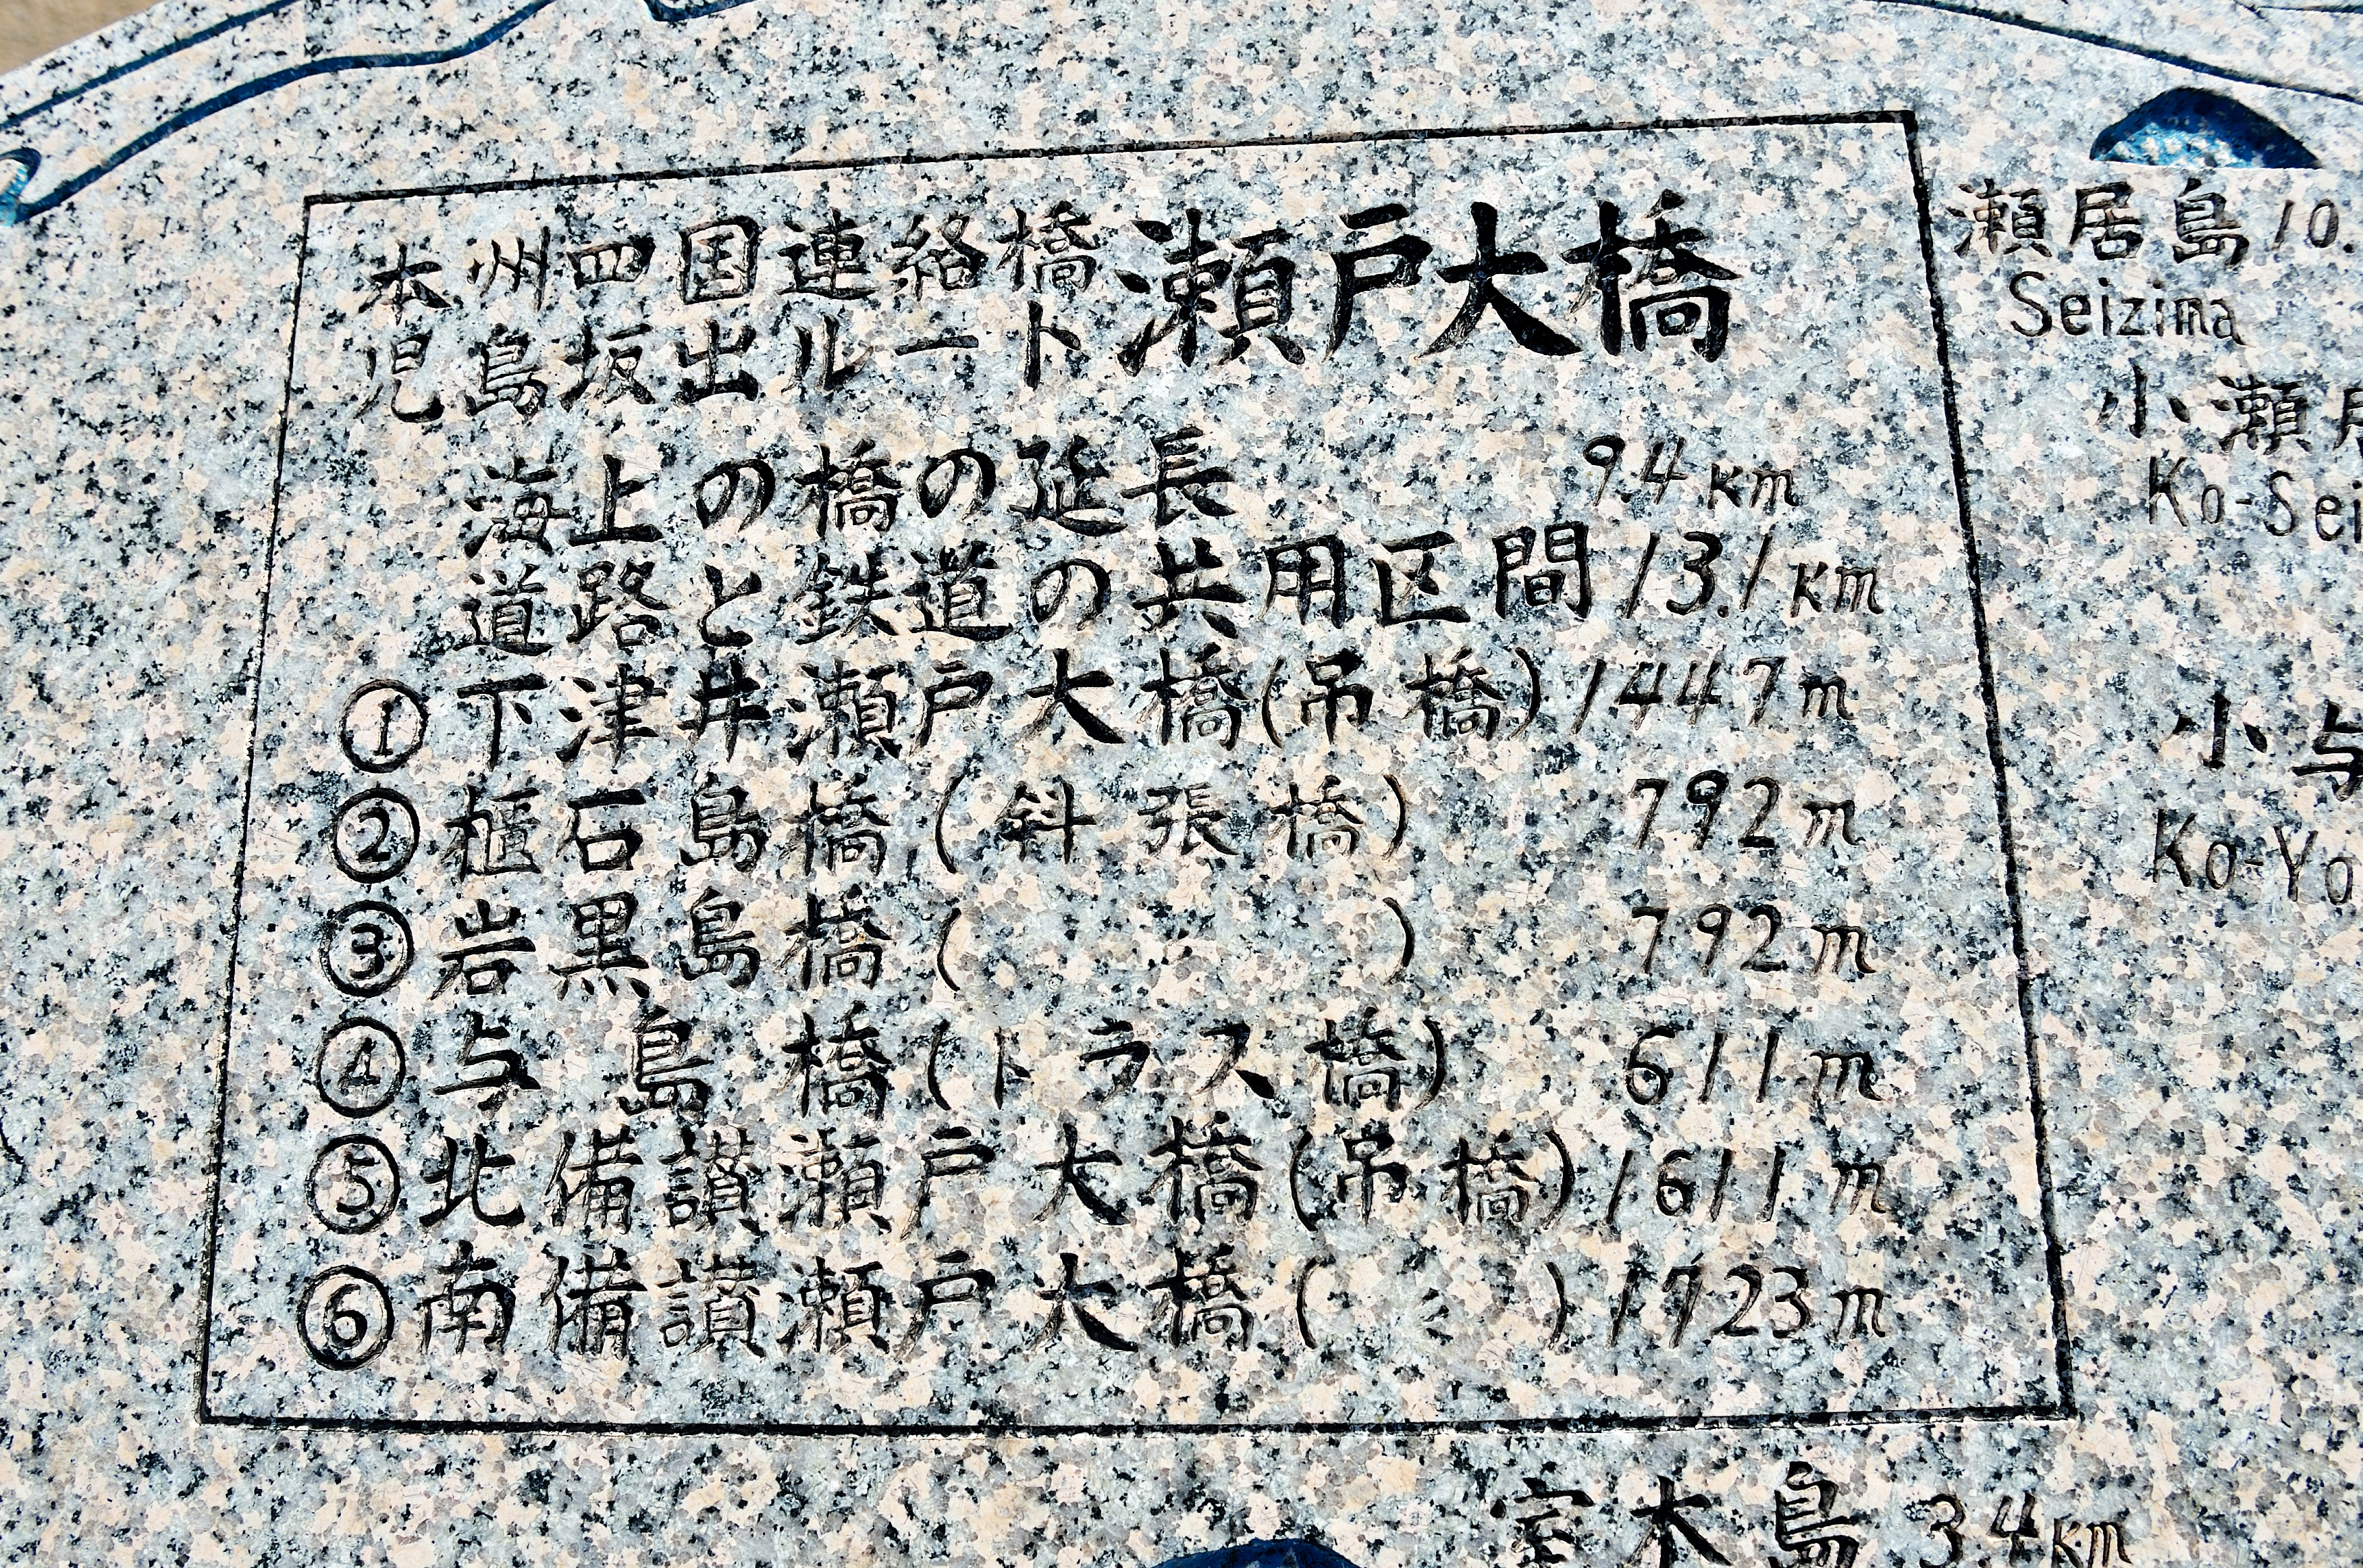 本州四国連絡橋
児島坂出ルート
瀬戸大橋
海上の橋の延長 9.4km
道路と鉄道の共用区間 13.1km
①下津井瀬戸大橋(吊橋) 1447m
②櫃石島橋(斜張橋) 792m
③岩黒島橋(〃) 792m
④与島橋(トラス橋) 611m
⑤北備讃瀬戸大橋(吊橋) 1611m
⑥南備讃瀬戸大橋(〃) 1723m
瀬居島 10.
Seizima
小瀬居
Ko-Sei
小与
Ko-Yo
室木島 3.4km